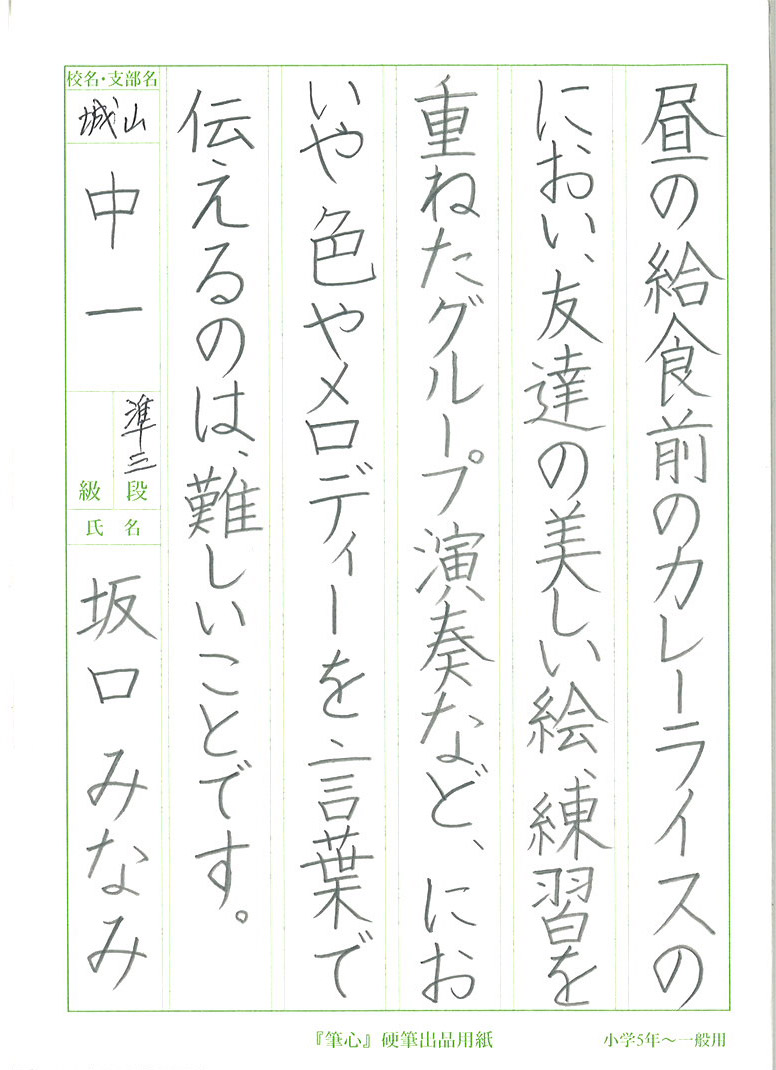 昼の給食前のカレーライスの
におい、友達の美しい絵、練習を
重ねたグループ演奏など、にお
いや色やメロディーを言葉で
伝えるのは、難しいことです。
校名・支部名
城山
中一
準三
級 段
氏名
坂口みなみ
『筆心』硬筆出品用紙
小学5年〜一般用